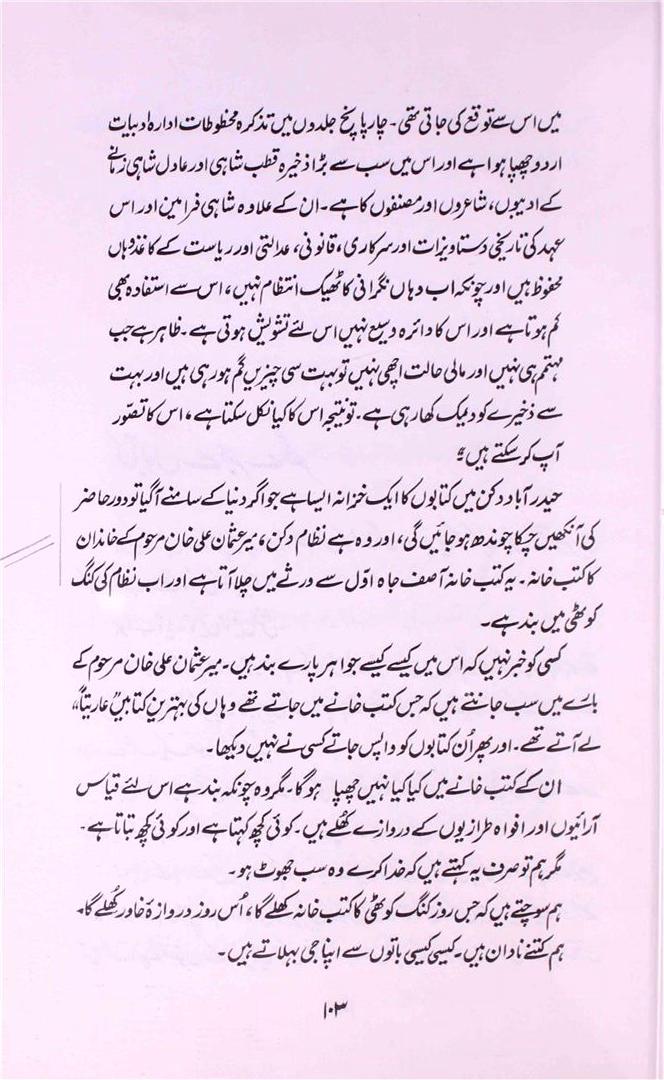 میں اس سے توقع کی جاتی تھی۔ چار پانچ جلدوں میں تذکرہ مخطوطات ادارہ ادبیات
اردو چھپا ہوا ہے اور اس میں سب سے بڑا ذخیرہ قطب شاہی اور عادل شاہی زمانے
کے ادیبوں، شاعروں اور مصنفوں کا ہے۔ ان کے علاوہ شاہی فرامین اور اس
عہد کی تاریخی دستاویزات اور سرکاری، قانونی، عدالتی اور ریاست کے کاغذ وہاں
محفوظ ہیں اور چونکہ اب وہاں نگرانی کا ٹھیک انتظام نہیں، اس سے استفادہ بھی
کم ہوتا ہے اور اس کا دائرہ وسیع نہیں اس لئے تشویش ہوتی ہے۔ ظاہر ہے جب
مہتمم ہی نہیں اور مالی حالت اچھی نہیں تو بہت سی چیزیں گم ہو رہی ہیں اور بہت
سے ذخیرے کو دیمک کھا رہی ہے۔ تو نتیجہ اس کا کیا نکل سکتا ہے، اس کا تصوّر
آپ کر سکتے ہیں‘‘
حیدرآباد دکن میں کتابوں کا ایک خزانہ ایسا ہے جو اگر دنیا کے سامنے آگیا تو دورِ حاضر
کی آنکھیں چکا چوندھ ہو جائیں گی، اور وہ ہے نظام دکن، میر عثمان علی خان مرحوم کے خاندان
کا کتب خانہ۔ یہ کتب خانہ آصف جاہ اوّل سے ورثے میں چلا آتا ہے اور اب نظام کی کنگ
کوٹھی میں بند ہے۔
کسی کو خبر نہیں کہ اس میں کیسے کیسے جواہر پارے بند ہیں۔ میر عثمان علی خان مرحوم کے
بارے میں سب جانتے ہیں کہ جس کتب خانے میں جاتے تھے وہاں کی بہترین کتابیں ’’عاریتاً‘‘
لے آتے تھے۔ اور پھر اُن کتابوں کو واپس جاتے کسی نے نہیں دیکھا۔
ان کے کتب خانے میں کیا کیا نہیں چھپا ہوگا۔ مگر وہ چونکہ بند ہے اس لئے قیاس
آرائیوں اور افواہ طرازیوں کے دروازے کُھلے ہیں۔ کوئی کچھ کہتا ہے اور کوئی کچھ بتاتا ہے۔
مگر ہم تو صرف یہ کہتے ہیں کہ خدا کرے وہ سب جھوٹ ہو۔
ہم سوچتے ہیں کہ جس روز کنگ کوٹھی کا کتب خانہ کھلے گا، اُس روز دروازۂ خاور کُھلے گا۔
ہم کتنے نادان ہیں۔ کیسی کیسی باتوں سے اپنا جی بہلاتے ہیں۔
۱۰۳